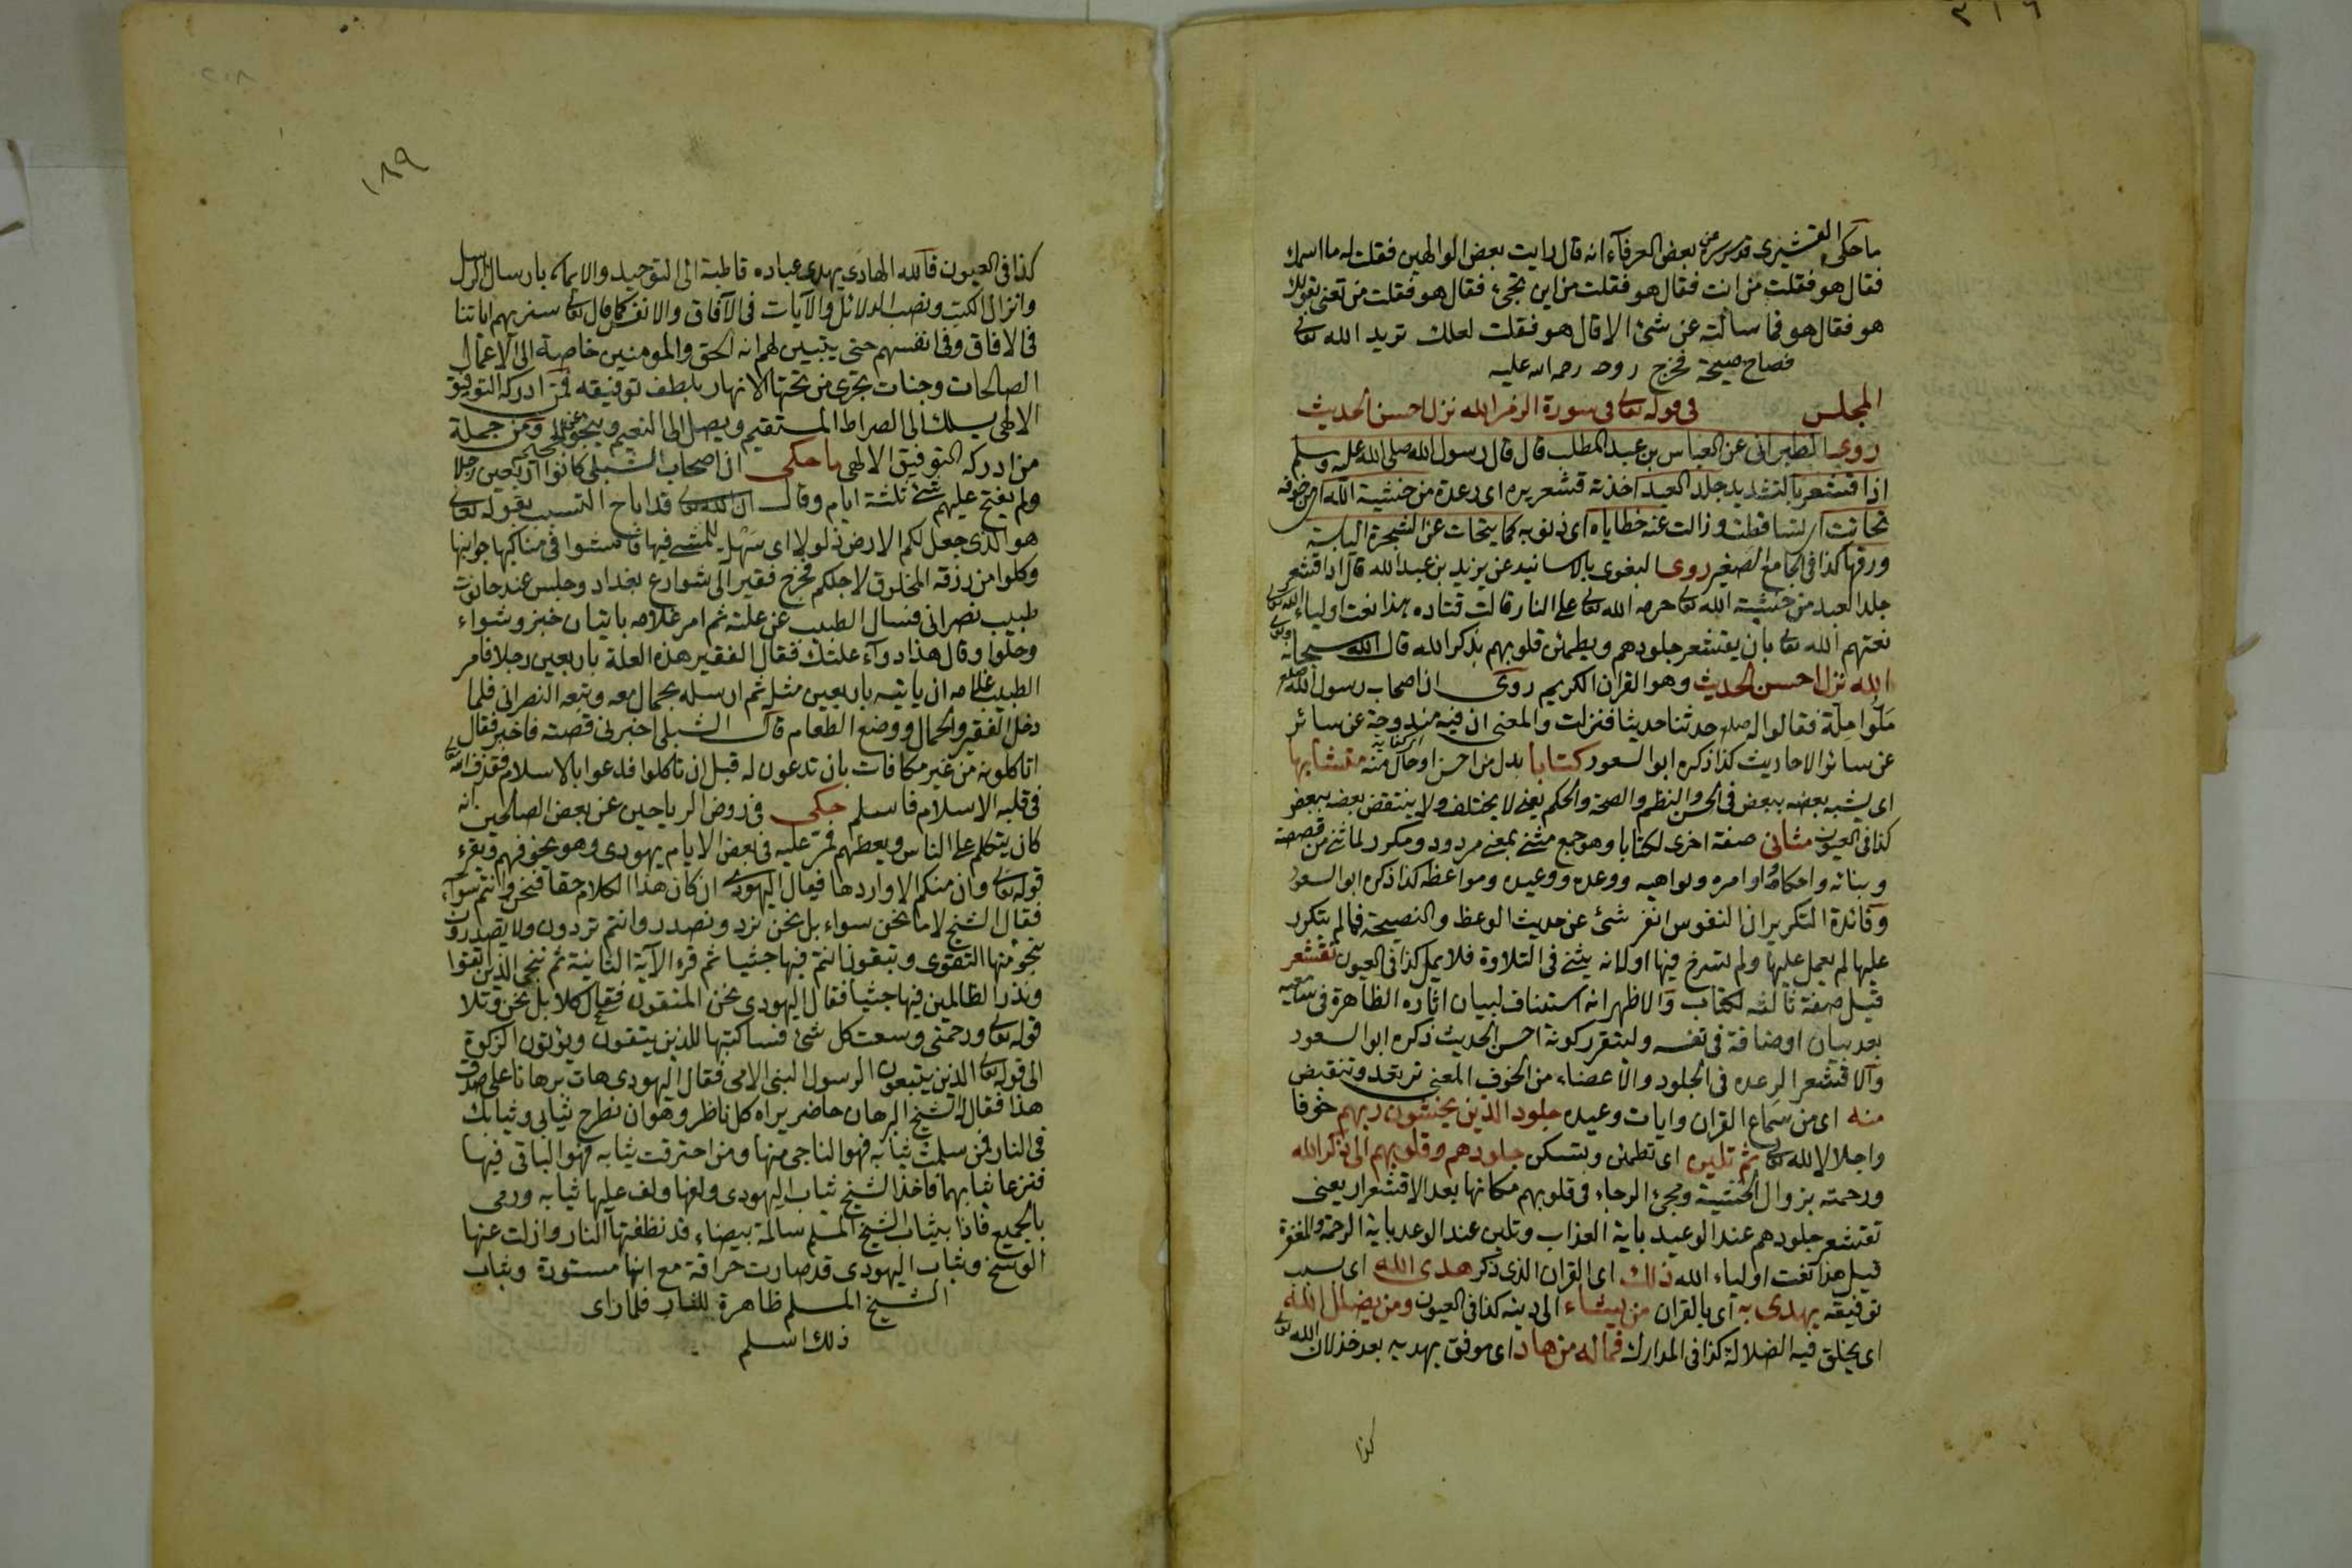 ٣١٦
ما حكى القشيرى قدس سره عن بعض العرفآء انه قال رايت بعض الوالهين فقلت له ما اسمك
فقال هو فقلت من انت فقال هو فقلت من اين تجىء فقال هو فقلت من تعنى بقولك
هو فقال هو فما سألته عن شئ الا قال هو فقلت لعلك تريد الله تعالى
فصاح صيحة فخرج روحه رحمه الله عليه
المجلس فى قوله تعالى فى سورة الزمر الله نزل احسن الحديث
روى الطبرانى عن العباس بن عبد المطلب قال قال رسول الله صلى الله عليه وسلم
اذا اقشعر بالتشديد جلد العبد اخذته قشعريره اى رعدة من خشية الله اى من خوفه
تحاتت اى تساقطت وزالت عنه خطاياه اى ذنوبه كما يتحات عن الشجرة اليابسة
ورقها كذا فى الجامع الصغير روى البغوى بالاسانيد عن يزيد بن عبد الله قال اذا اقشعر
جلد العبد من خشية الله تعالى حرمه الله تعالى على النار قالت قتاده هذا نعت اولياء الله تعالى
نعتهم الله تعالى بان يقشعر جلودهم ويطمئن قلوبهم بذكر الله قال الله سبحانه وتعالى
الله نزل احسن الحديث وهو القران الكريم روى ان اصحاب رسول الله صلعم
ملّوا مِلّة فقالوا له صلعم حدثنا حديثا فنزلت والمعنى ان فيه مندوحة عن سائر
عن سائر الاحاديث كذا ذكره ابو السعود كتابا بدل من احسن او حال منه متشابها
اى يشبه بعضه ببعض فى الحسن والنظم والصحة والحكم يعنى لا يختلف ولا ينتقض بعضه ببعض
كذا فى العيون مثانى صفة اخرى لكتابا وهو جمع مثنى بمعنى مردود ومكرر لما ثنى من قصصه
وبنائه واحكامه اوامره ونواهيه ووعده ووعيده ومواعظه كذا ذكره ابو السعود
وفائدة التكرير ان النفوس انفر شئ عن حديث الوعظ والنصيحة فما لم يتكرر
عليها لم يعمل عليها ولم تسرخ فيها اولانه يثنى فى التلاوة فلا يمل كذا فى العيون تقشعر
قيل صفة ثالثة لكتاب والاظهر انه استئناف لبيان اثاره الظاهرة فى سامعيه
بعد بيان اوصافه فى نفسه وليتقرر كونه احسن الحديث ذكره ابو السعود
والاقشعر الرعده فى الجلود والاعضاء من الخوف المعنى ترتعد وتنقبض
منه اى من سماع القران وايات وعيده جلود الذين يخشون ربهم خوفا
واجلالا لله تعالى ثم تلين اى تطمئن وتسكن جلودهم وقلوبهم الى ذكر الله
ورحمته بزوال الخشية ومجئ الرجاء فى قلوبهم مكانها بعد الاقشعرار يعنى
تقشعر جلودهم عند الوعيد باية العذاب وتلين عند الوعد باية الرحمة والمغفرة
قيل هذا نعت اولياء الله ذلك اى القران الذى ذكر هدى الله اى سبب
توفيقه يهدى به اى بالقران من يشاء الى دينه كذا فى العيون ومن يضلل الله
اى يخلق فيه الضلالة كذا فى المدارك فما له من هاد اى موفق يهديه بعد خذلان الله تعالى
كذا
٢٠٨
١٨٩
كذا فى العيون فالله الهادى يهدى عباده قاطبة الى التوحيد والايمان بارسال الرسل
وانزال الكتب ونصب الدلائل والآيات فى الآفاق والانفس كما قال تعالى سنريهم اياتنا
فى الافاق وفى انفسهم حتى يتبين لهم انه الحق والمومنين خاصة الى الاعمال
الصالحات وجنات تجرى من تحتها الانهار بلطف توفيقه فمن ادركه التوفيق
الالهى يسلك الى الصراط المستقيم ويصل الى النعيم وينجو عن الجحيم ومن جملة
من ادركه التوفيق الالهى ما حكى ان اصحاب الشبلى كانوا اربعين رجلا
ولم يفتح عليهم شئ ثلثة ايام وقال ان الله تعالى قد اباح التسبب بقوله تعالى
هو الذى جعل لكم الارض ذلولا اى سهل للمشى فيها فامشوا فى مناكبها جوانبها
وكلوا من رزقه المخلوق لاجلكم فخرج فقير الى شوارع بغداد وجلس عند حانوت
طبيب نصرانى فسال الطبيب عن علته ثم امر غلامه باتيان خبز وشواء
وحلوا وقال هذا دوآء علتك فقال الفقير هذه العلة باربعين رجلا فامر
الطبيب غلامه ان ياتيه باربعين مثله ثم ارسله بحمال معه وتبعه النصرانى فلما
دخل الفقير والحمال ووضع الطعام قال الشبلى اخبرنى قصته فاخبر فقال
اتاكلونه من غير مكافات بان تدعون له قبل ان تاكلوا فدعوا بالاسلام فقذف الله تعالى
فى قلبه الاسلام فاسلم حكى فى روض الرياحين عن بعض الصالحين انه
كان يتكلم على الناس ويعظهم فمر عليه فى بعض الايام يهودى وهو يخوفهم ويقرء
قوله تعالى وان منكم الا واردها فقال اليهودى ان كان هذا الكلام حقا فنحن وانتم سوآء
فقال الشيخ لا ما نحن سواء بل نحن نرد ونصدر وانتم تردون ولا تصدرون
ننجو منها التقوى وتبقون انتم فيها جثيا ثم قرء الآية الثانية ثم ننجى الذين اتقوا
ونذر الظالمين فيها جثيا فقال اليهودى نحن المتقون فقال كلا بل نحن وتلا
قوله تعالى ورحمتى وسعت كل شئ فساكتبها للذين يتقون ويؤتون الزكوة
الى قوله تعالى الذين يتبعون الرسول النبى الامى فقال اليهودى هات برهانا على صدق
هذا فقال له الشيخ البرهان حاضر يراه كل ناظر وهو ان نطرح ثيابى وثيابك
فى النار فمن سلمت ثيابه فهو الناجى منها ومن احترقت ثيابه فهو الباقى فيها
فنزعا ثيابهما فاخذ الشيخ ثياب اليهودى ولفها ولف عليها ثيابه ورمى
بالجميع فاذا بثياب الشيخ المسلم سالمة بيضاء قد نظفتها النار وازلت عنها
الوسخ وثياب اليهودى قد صارت حراقة مع انها مستورة وثياب
الشيخ المسلم ظاهرة للنار فلما راى
ذلك اسلم